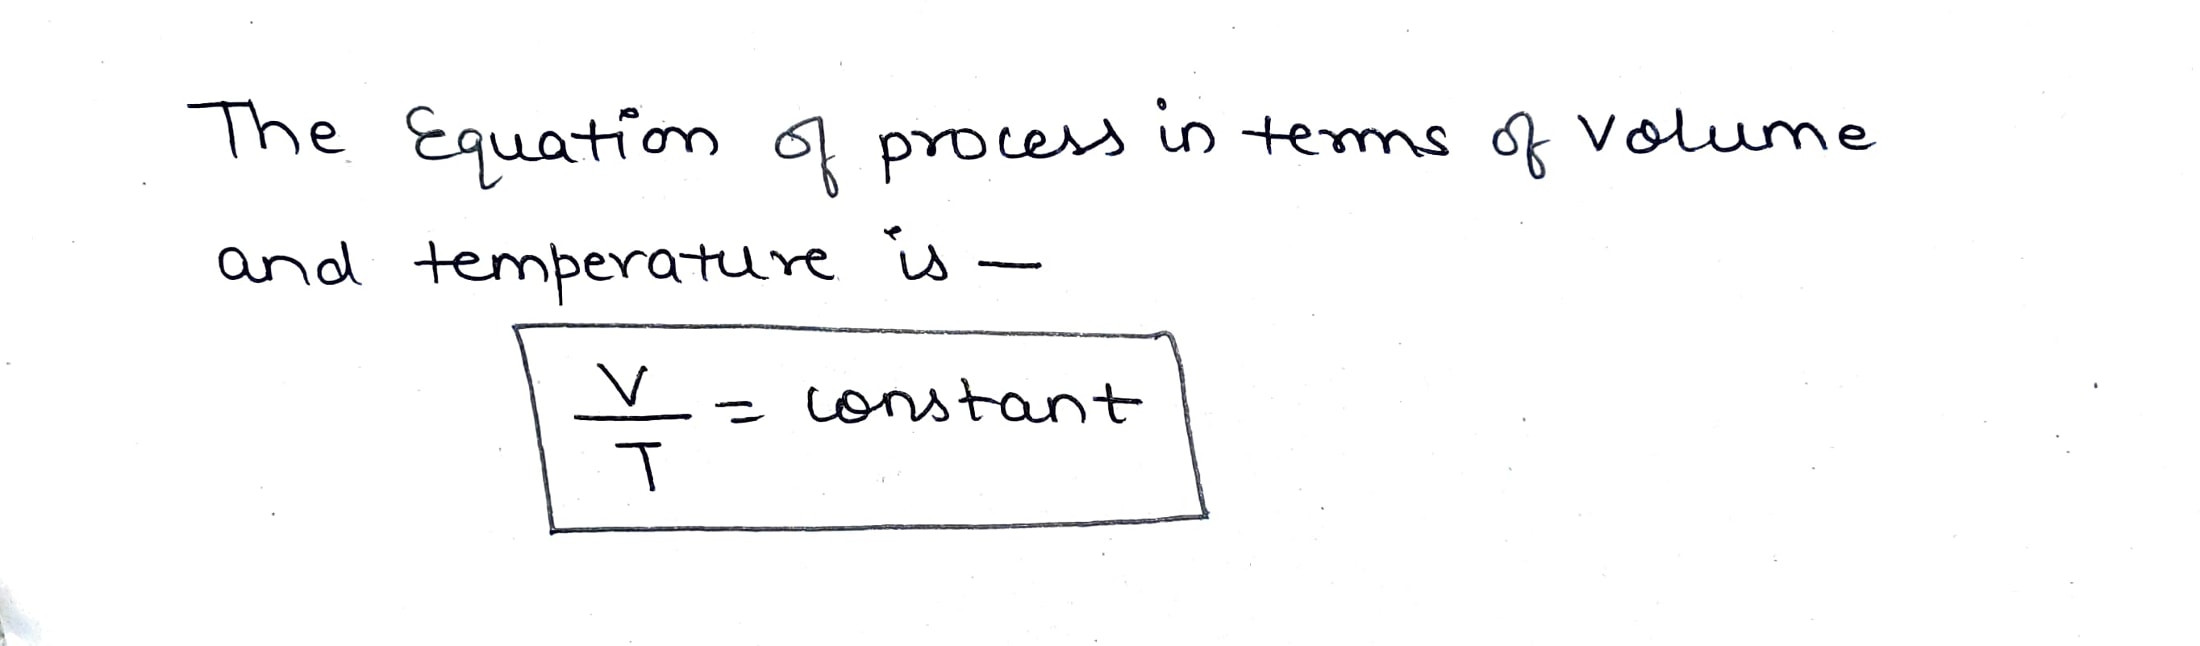 The Equation of process in terms of volume
and temperature is —
V
—
T
= constant